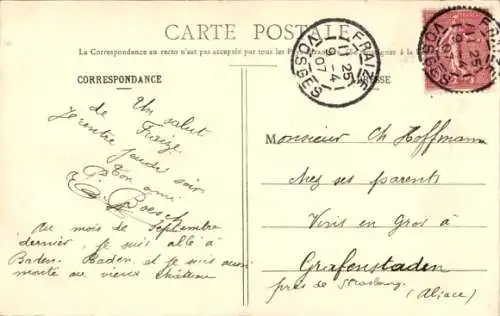 CARTE POSTALE
La Correspondance au recto n'est pas acceptée par tous les Pays
CORRESPONDANCE
Un salut
de Fraize.
Je rentre jeudi soir
Ton ami
Boesch
Au mois de Septembre
dernier, je suis allé à
Baden-Baden, et je suis aussi
monté au vieux château
FRAIZE
11 25
9 - 4
07
VOSGES
FRAIZE
11 25
9 - 4
VOSGES
Monsieur Ch Hoffmann
chez ses parents
Vins en Gros à
Grafenstaden
près de Strasbourg
(Alsace)